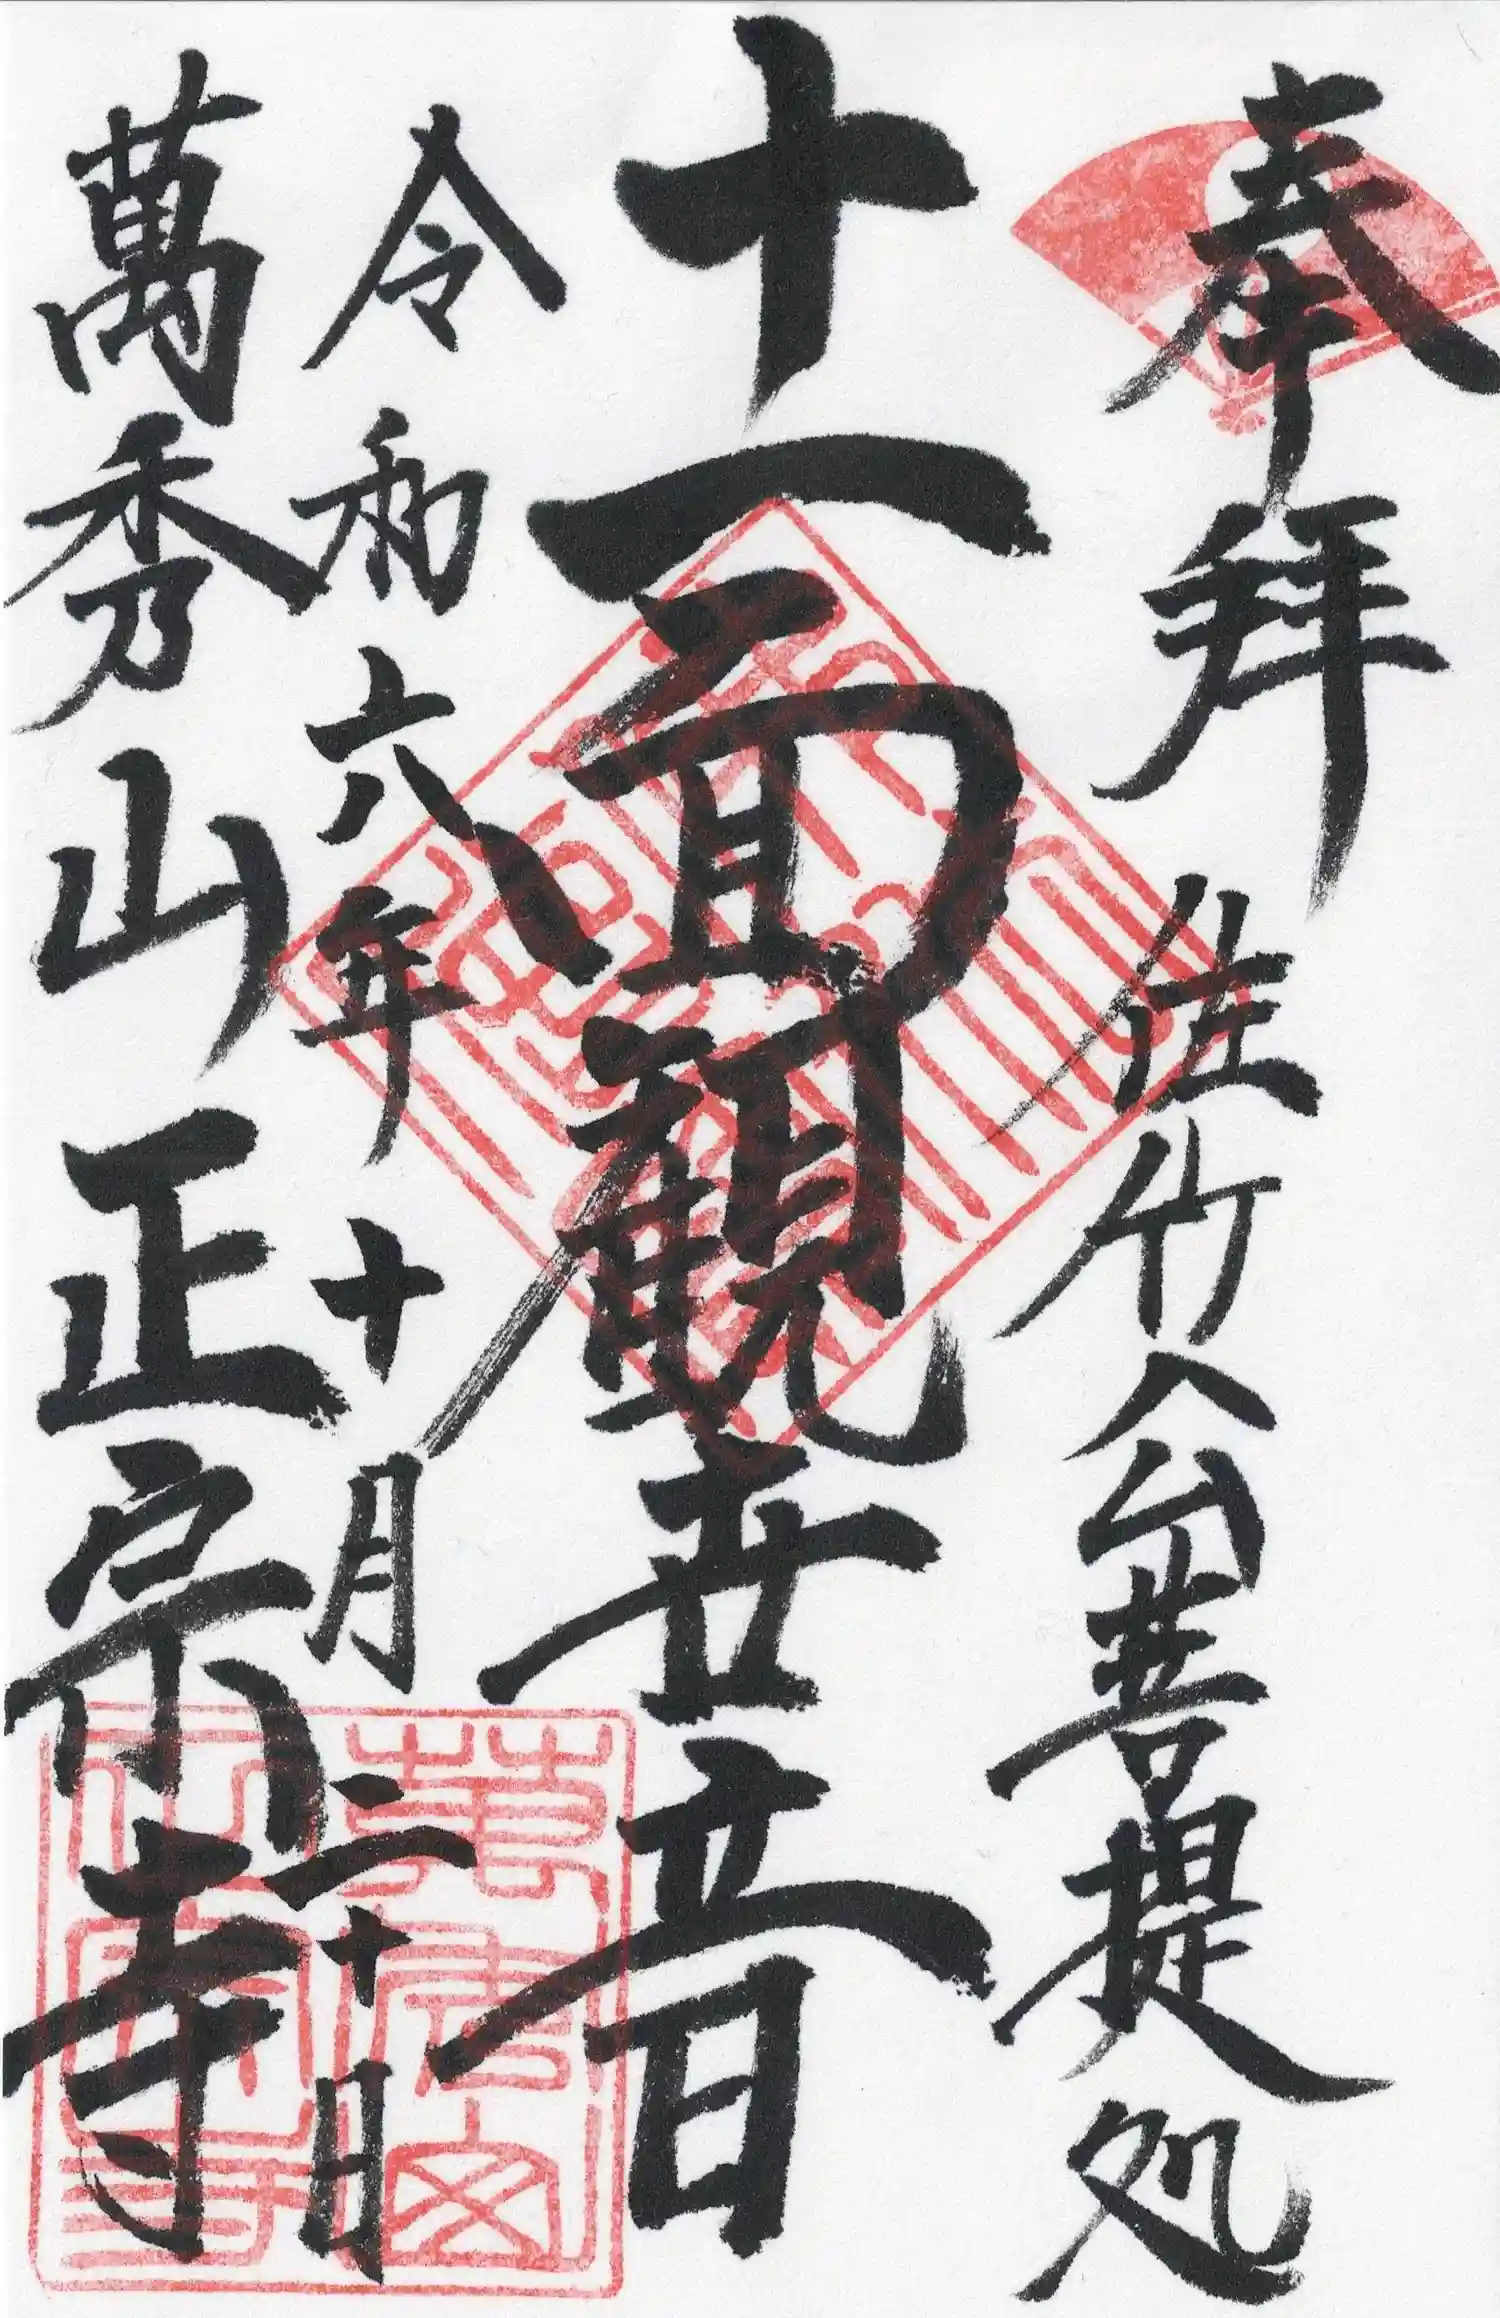 奉拝 佐竹公菩提処
十一面観世音
令和六年十月二十日
萬秀山正宗寺